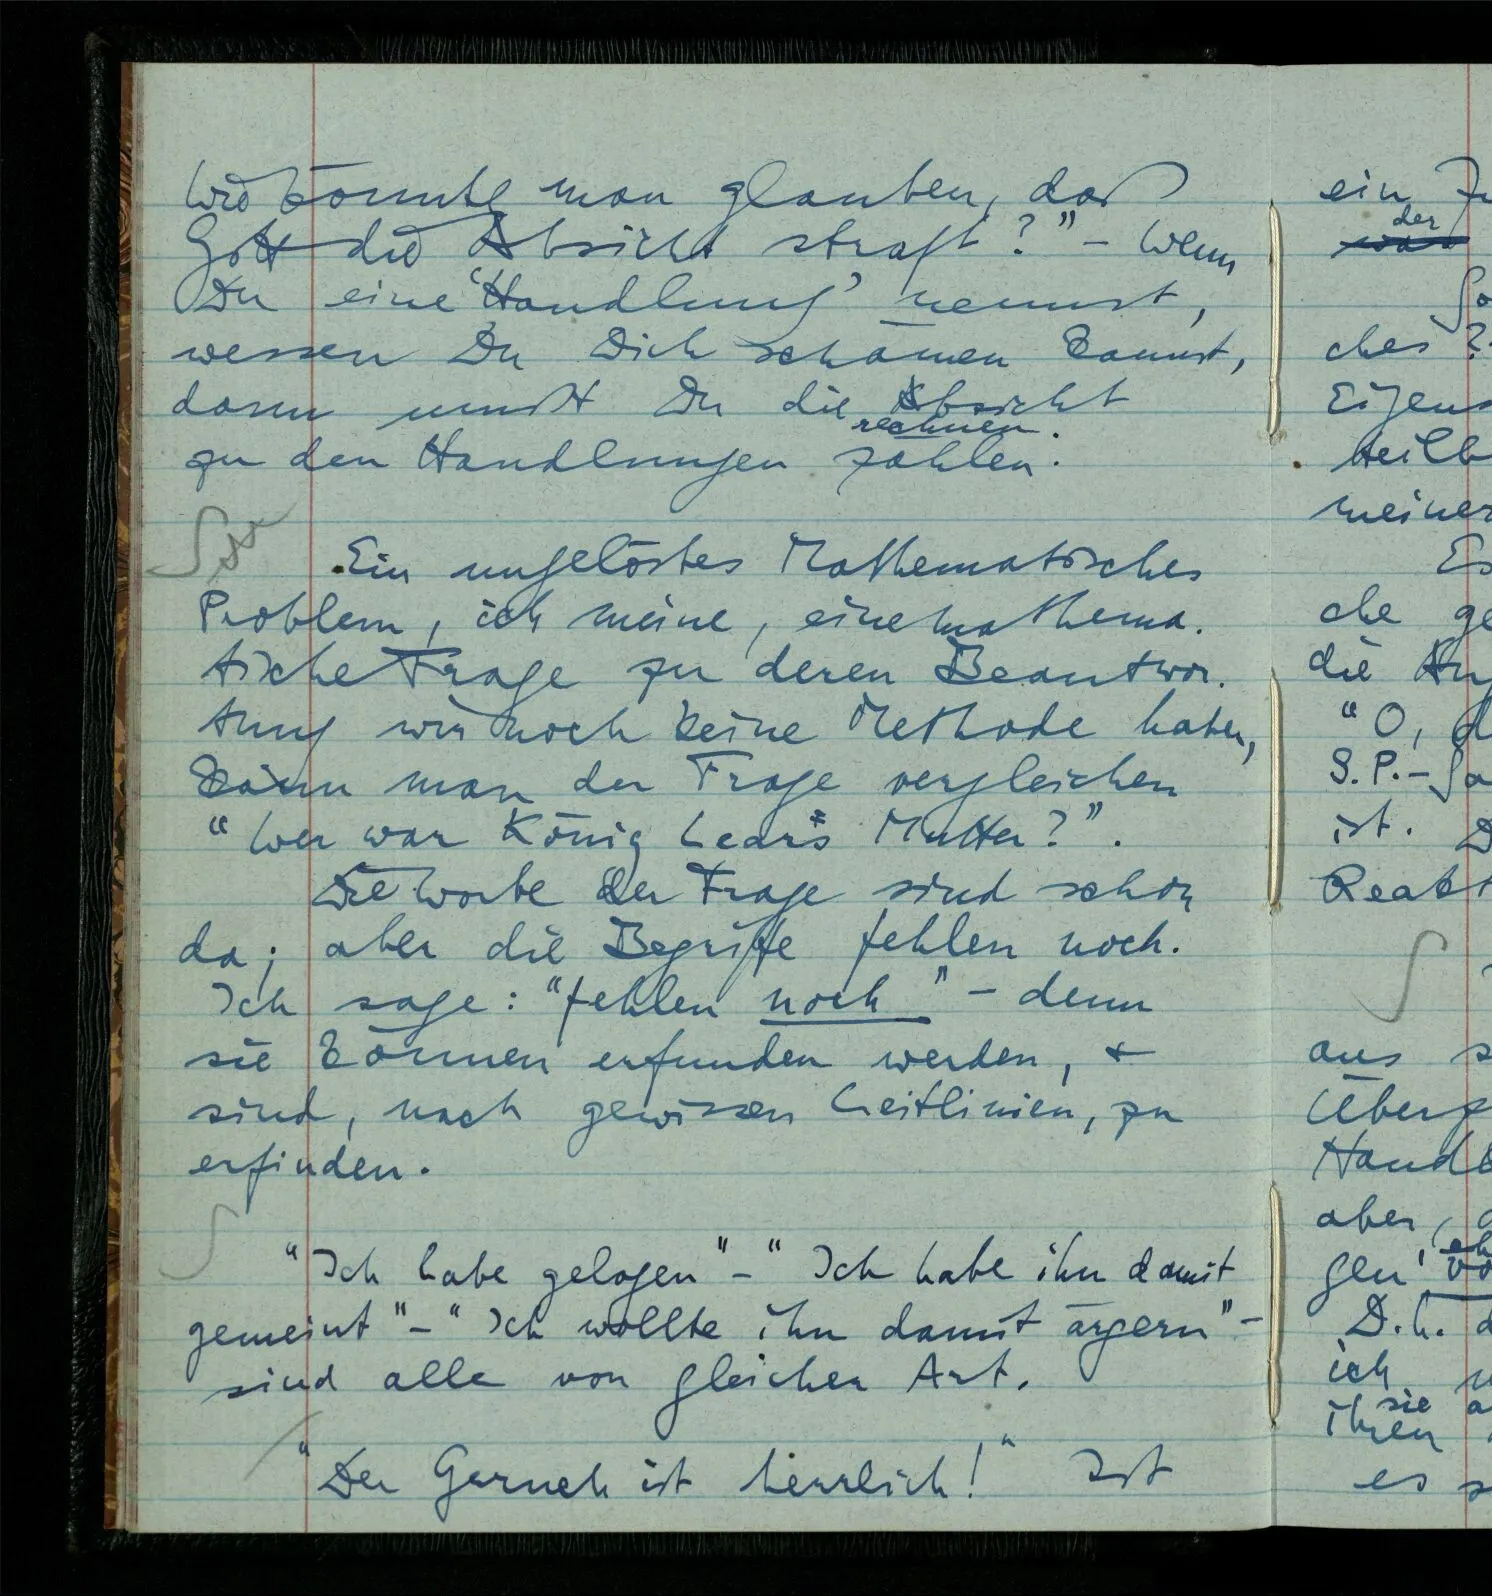 Wie könnte man glauben, daß
Gott die Absicht straft?" – Wenn
Du eine 'Handlung' nennst,
wessen Du Dich schämen kannst,
dann mußt Du die Absicht
rechnen.
zu den Handlungen zählen.
Ein ungelöstes Mathematisches
Problem, ich meine, eine mathema-
tische Frage zu deren Beantwor-
tung wir noch keine Methode haben,
kann man der Frage vergleichen
"Wer war König Lear's Mutter?".
Die Worte der Frage sind schon
da; aber die Begriffe fehlen noch.
Ich sage: "fehlen noch" – denn
sie können erfunden werden, &
sind, nach gewissen Leitlinien, zu
erfinden.
"Ich habe gelogen" – "Ich habe ihn damit
gemeint" – "Ich wollte ihn damit ärgern" –
sind alle von gleicher Art.
"Der Geruch ist herrlich!" Ist
ein
der
ches?
meiner
Es
che
die
"O,
S.P. –
ist.
aus
aber,
gen'
D.h.
ich
sie
ihren
es